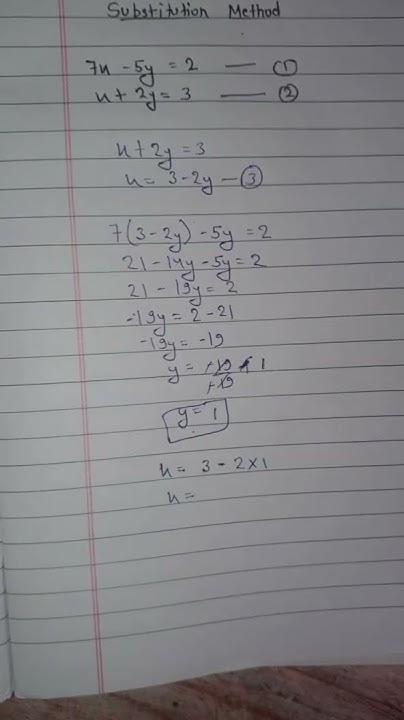 Substitution Method
7x - 5y = 2 — ①
x + 2y = 3 — ②
x + 2y = 3
x = 3 - 2y — ③
7(3 - 2y) - 5y = 2
21 - 14y - 5y = 2
21 - 19y = 2
-19y = 2 - 21
-19y = -19
y = +19 1
+19
y = 1
x = 3 - 2 × 1
x =